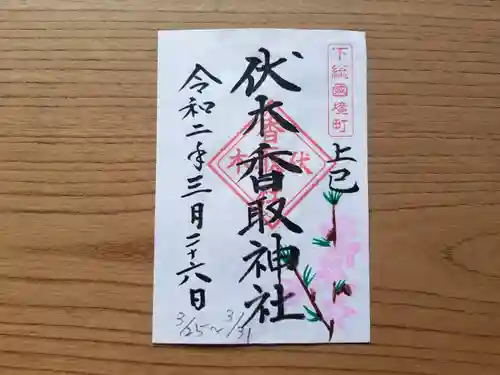 下総國境町
上巳
伏木香取神社
令和二年三月二十六日
3/25〜3/31